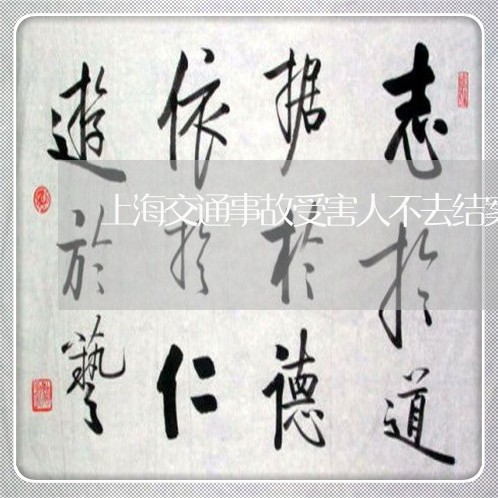 志於道
据於德
依於仁
遊於藝
上海交通事故受害人不去结案